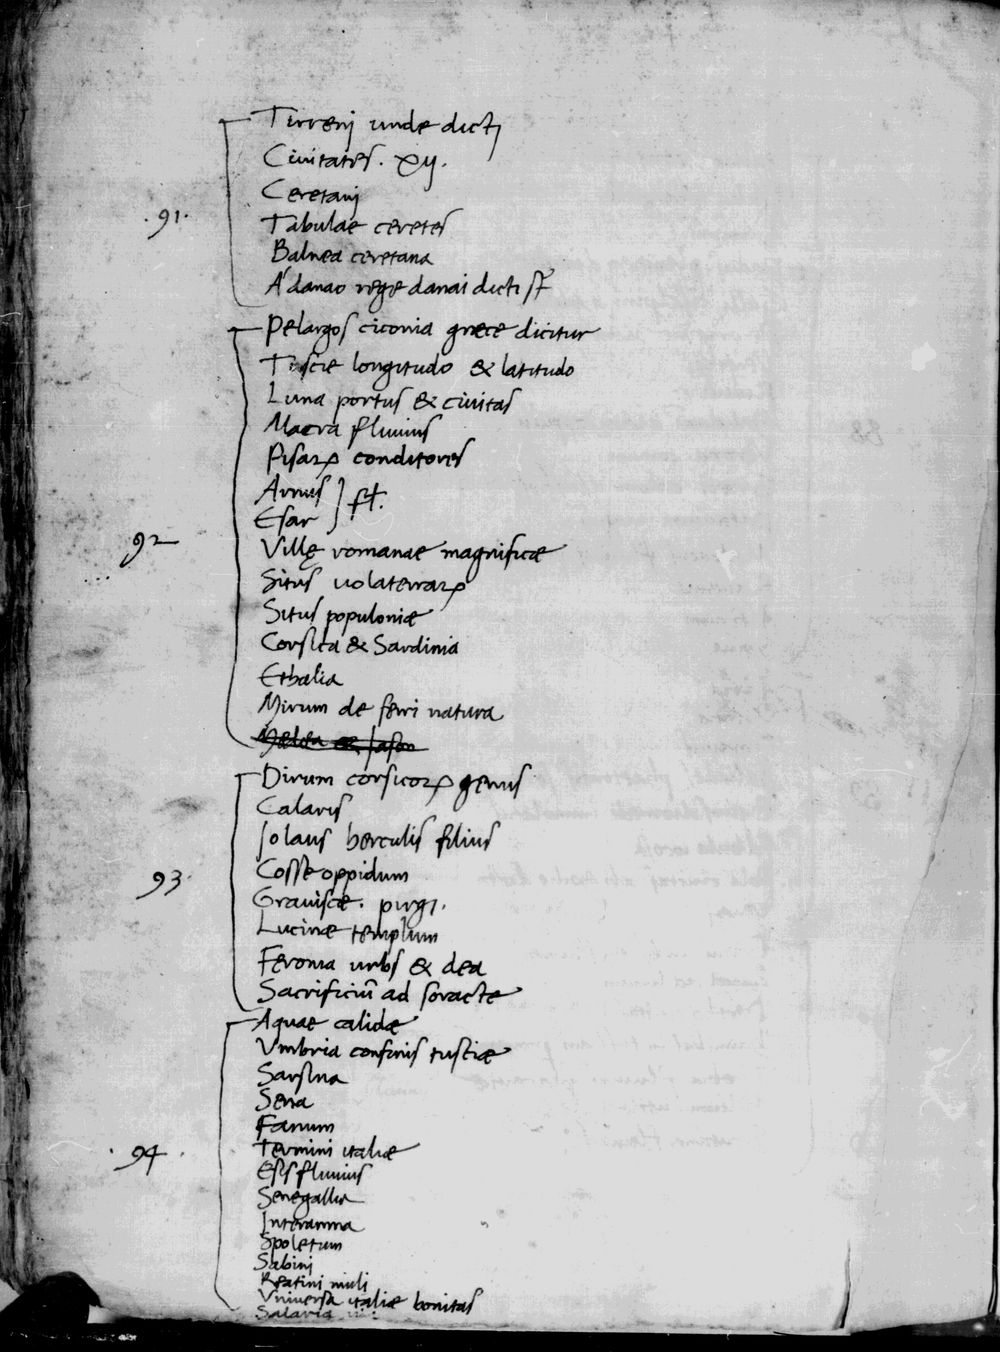 Tirrenj unde dictj
Ciuitates. xij.
Ceretanj
.91.
Tabulae ceretes
Balnea ceretana
A danao rege danai dicti st̃
Pelargos ciconia grece dicitur
Tuscie longitudo & latitudo
Luna portus & ciuitas
Macra fluuius
Pisaꝝ conditores
Arnus
Esar ] fl.
92
Villę romanae magnificæ
Situs uolaterraꝝ
Situs populoniæ
Corsica & Sardinia
Ethalia
Mirum de ferri natura
Medea & Jason
Dirum corsicoꝝ genus
Calaris
Jolaus herculis filius
93.
Cosse oppidum
Grauiscæ. pirgi.
Lucinæ templum
Feronia urbs & dea
Sacrificiũ ad soracte
Aquae calidæ
Vmbria confinis tusciæ
Sarsina
Sena
Fanum
.94.
Termini italiæ
Esis fluuius
Senegallia
Interamna
Spoletum
Sabini
Reatini muli
Vniuersa italiæ bonitas
Salaria